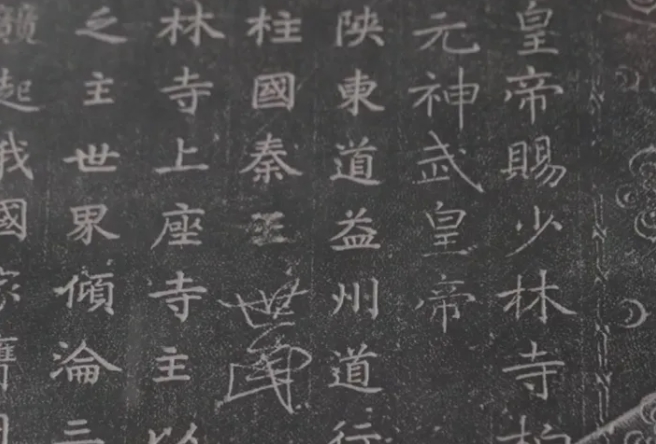 皇帝賜少林寺柏
元神武皇帝
陝東道益州道行
柱國秦王世民
林寺上座寺主以
之主世界傾淪
起我國